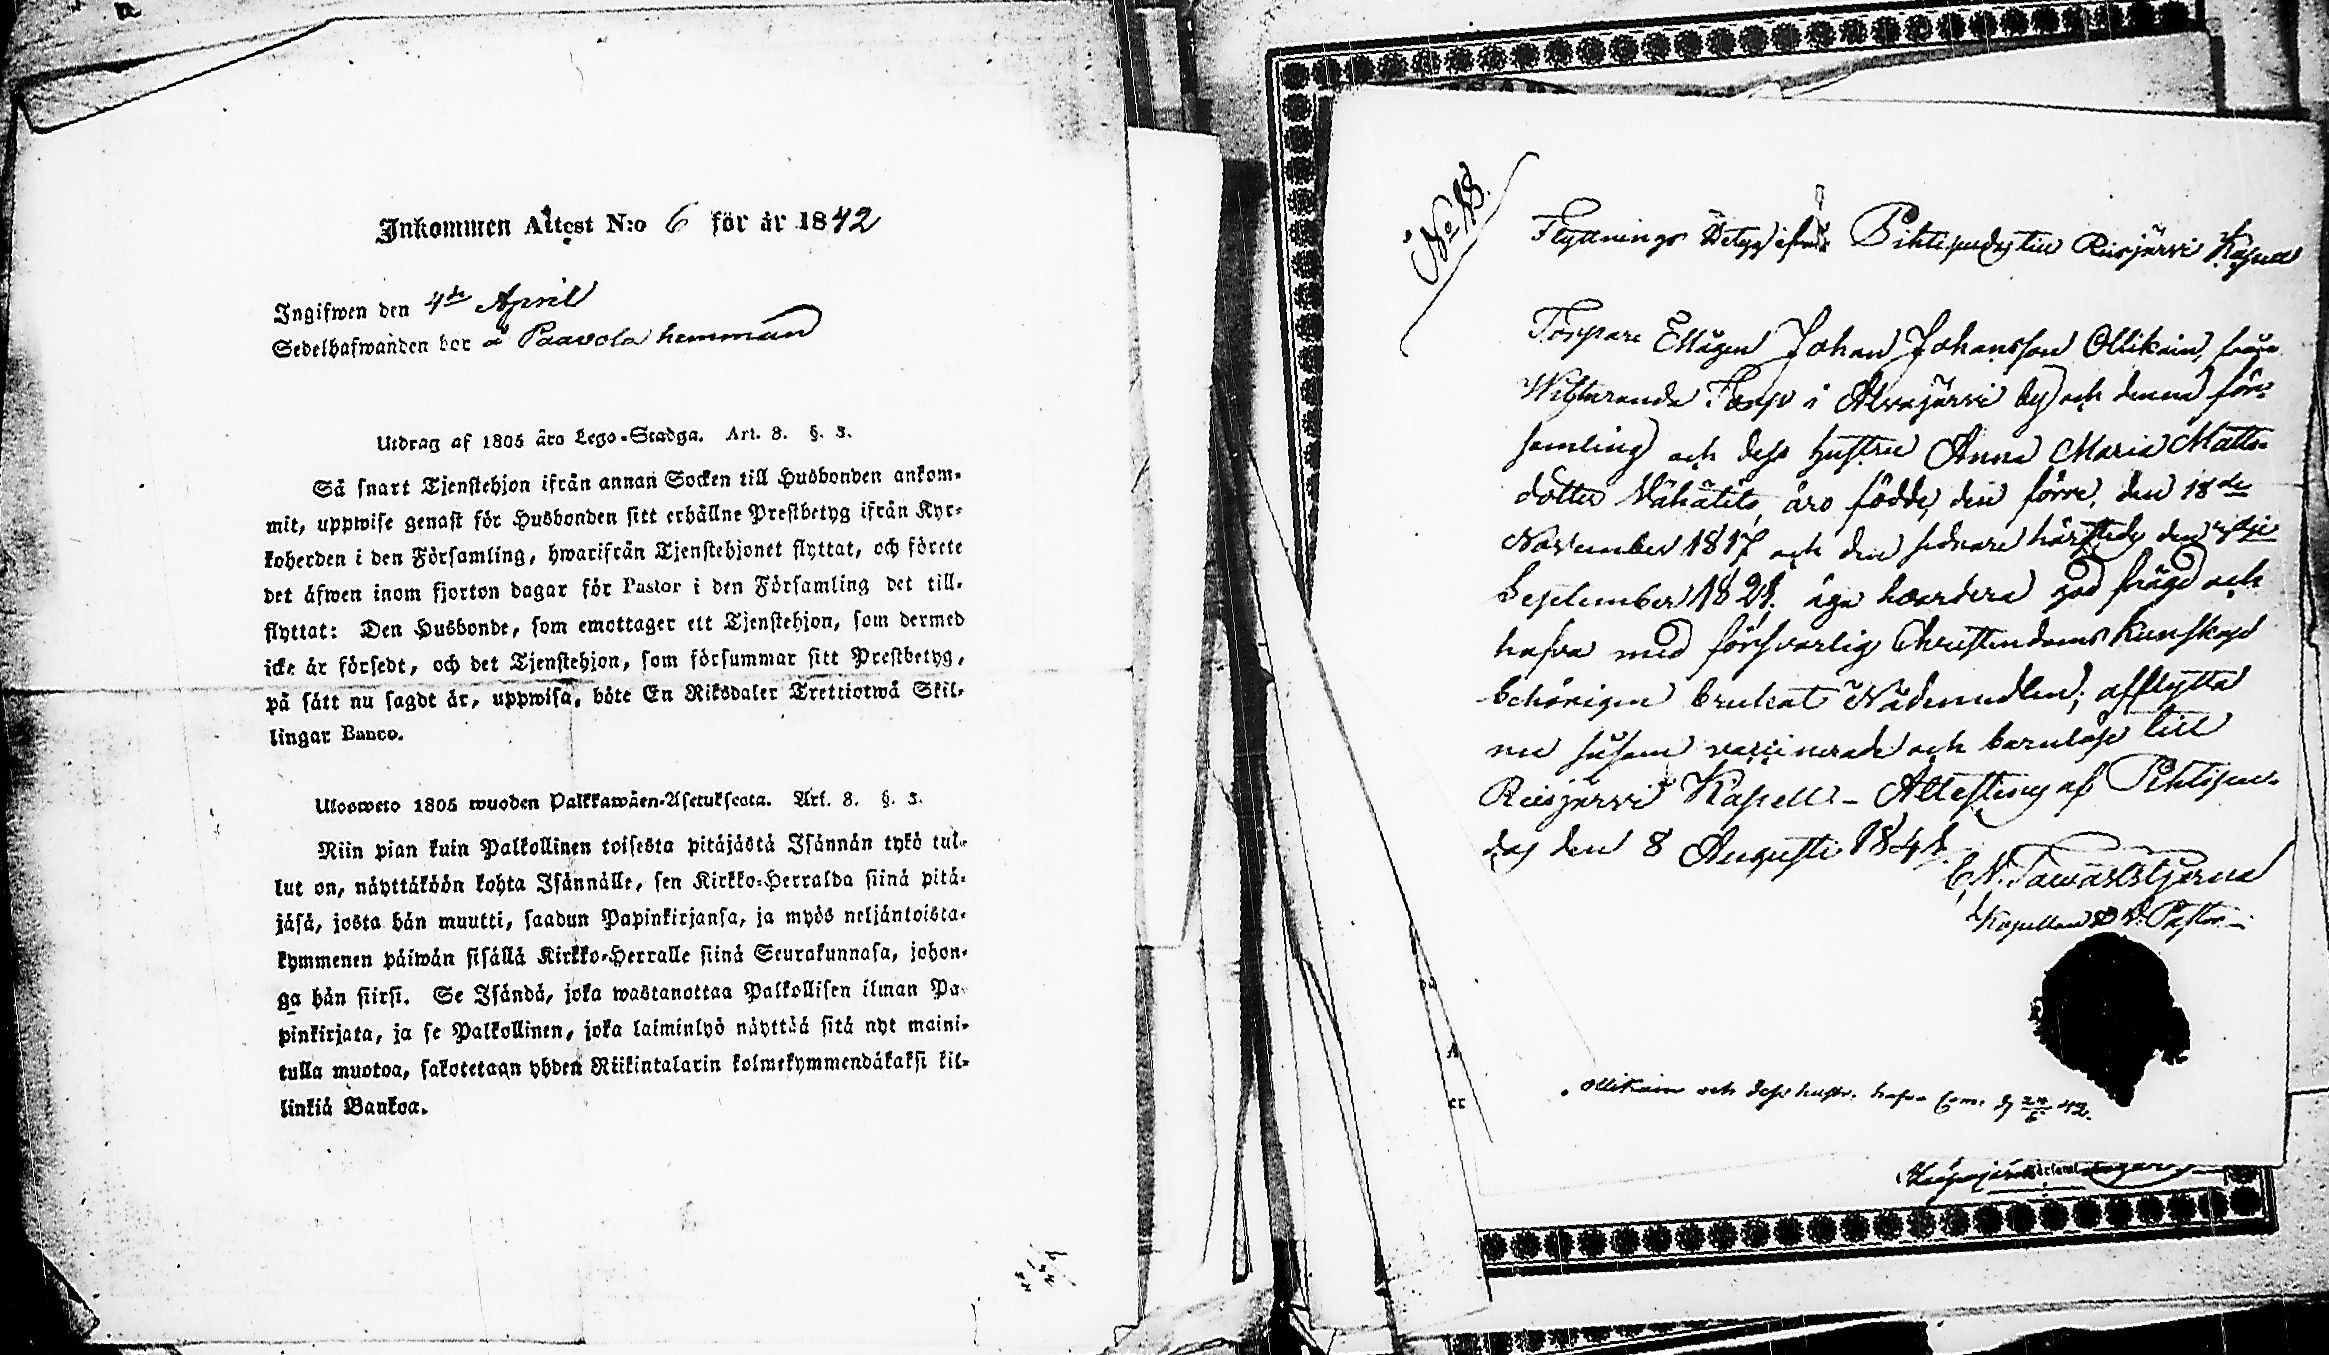 Inkommen Attest N:o 6 för år 1842
Ingifwen den 4de April
Sedelhafwanden bor å Paavola hemman
Utdrag af 1805 års Lego-Stadga. Art. 8. §. 3.
Så snart Tjenstehjon ifrån annan Socken till Husbonden ankom-
mit, uppwise genast för Husbonden sitt erhållne Prestbetyg ifrån Kyr-
koherden i den Församling, hwarifrån Tjenstehjonet flyttat, och förete
det äfwen inom fjorton dagar för Pastor i den Församling det till-
flyttat: Den Husbonde, som emottager ett Tjenstehjon, som dermed
icke är försedt, och det Tjenstehjon, som försummar sitt Prestbetyg,
på sätt nu sagdt är, uppwisa, böte En Riksdaler Trettiotwå Skil-
lingar Banco.
Ulosweto 1805 wuoden Palkkawäen-Asetuksesta. Art. 8. §. 3.
Niin pian kuin Palkollinen toisesta pitäjästä Isännän tykö tul-
lut on, näyttäköön kohta Isännälle, sen Kirkko-Herralda siinä pitä-
jäsä, josta hän muutti, saadun Papinkirjansa, ja myös neljäntoista-
kymmenen päiwän sisällä Kirkko-Herralle siinä Seurakunnasa, johon-
ga hän siirsi. Se Isändä, joka wastanottaa Palkollisen ilman Pa-
pinkirjata, ja se Palkollinen, joka laiminlyö näyttää sitä nyt maini-
tulla muotoa, sakotetaan yhden Riikintalarin kolmekymmendäkaksi kil-
linkiä Bankoa.
No 18.
Flyttnings Betyg ifrån Pihtipudas till Reisjärvi Kapell
Torpare Mågen Johan Johansson Ollikain, från
Torp i Alvajärvi by och denna för-
samling och dess hustru Anna Maria Matts-
dotter Vähätilo, äro födde, den förre, den 18de
November 1817 och den sednare härstedes den
September 1821. äga hvardera god frägd och
hafva med försvarlig Christendoms kunskap
behörigen brukat Nådemedlen; afflytta
nu såsom vaccinerade och barnlöse till
Reisjärvi Kapell – Attesteras af Pihtipu-
das den 8 Augusti 1841.
C. N. Tawaststjerna
Kapellan & V. Pastor
Ollikain och dess hustr. hafva